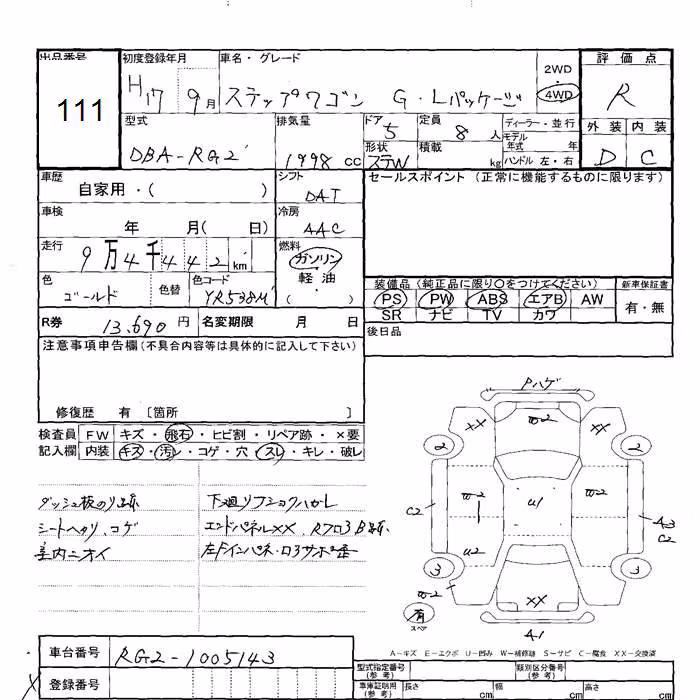 出品番号 初度登録年月 車名・グレード 評価点
111
H17 9月 ステップワゴン G・Lパッケージ 2WD 4WD R
型式 排気量 ドア 定員 ディーラー・並行 外装 内装
DBA-RG2 1998 cc 5 8人 モデル年式 年
形状 ステW 積載 kg ハンドル 左・右 D C
車歴 自家用・( ) シフト DAT セールスポイント (正常に機能するものに限ります)
車検 年 月( 日) 冷房 AAC
走行 9万4千442km 燃料 ガソリン・軽油 ( )
色 ゴールド 色替 色コード YR538M
装備品(純正品に限り〇をつけてください) 新車保証書
PS PW ABS エアB AW 有・無
SR ナビ TV カワ
R券 13,690円 名変期限 月 日 後日品
注意事項申告欄(不具合内容等は具体的に記入して下さい)
修復歴 有 〔箇所 〕
検査員 FW キズ・飛石・ヒビ割・リペア跡・×要
記入欄 内装 キズ・汚レ・コゲ・穴・スレ・キレ・破レ
シートヘタリ、コゲ
室内ニオイ
Pハゲ
XX W2 XX
2 2
C2 W2 U1 W2 A3
C2
U2
3 3
W2 XX
有 スペア A1
A-キズ E-エクボ U-凹み W-補修跡 S-サビ C-腐食 XX-交換済
車台番号 RG2-1005143
登録番号
型式指定番号(参考) 類別区分番号(参考)
車庫証明用(参考) 長さ cm 幅 cm 高さ cm